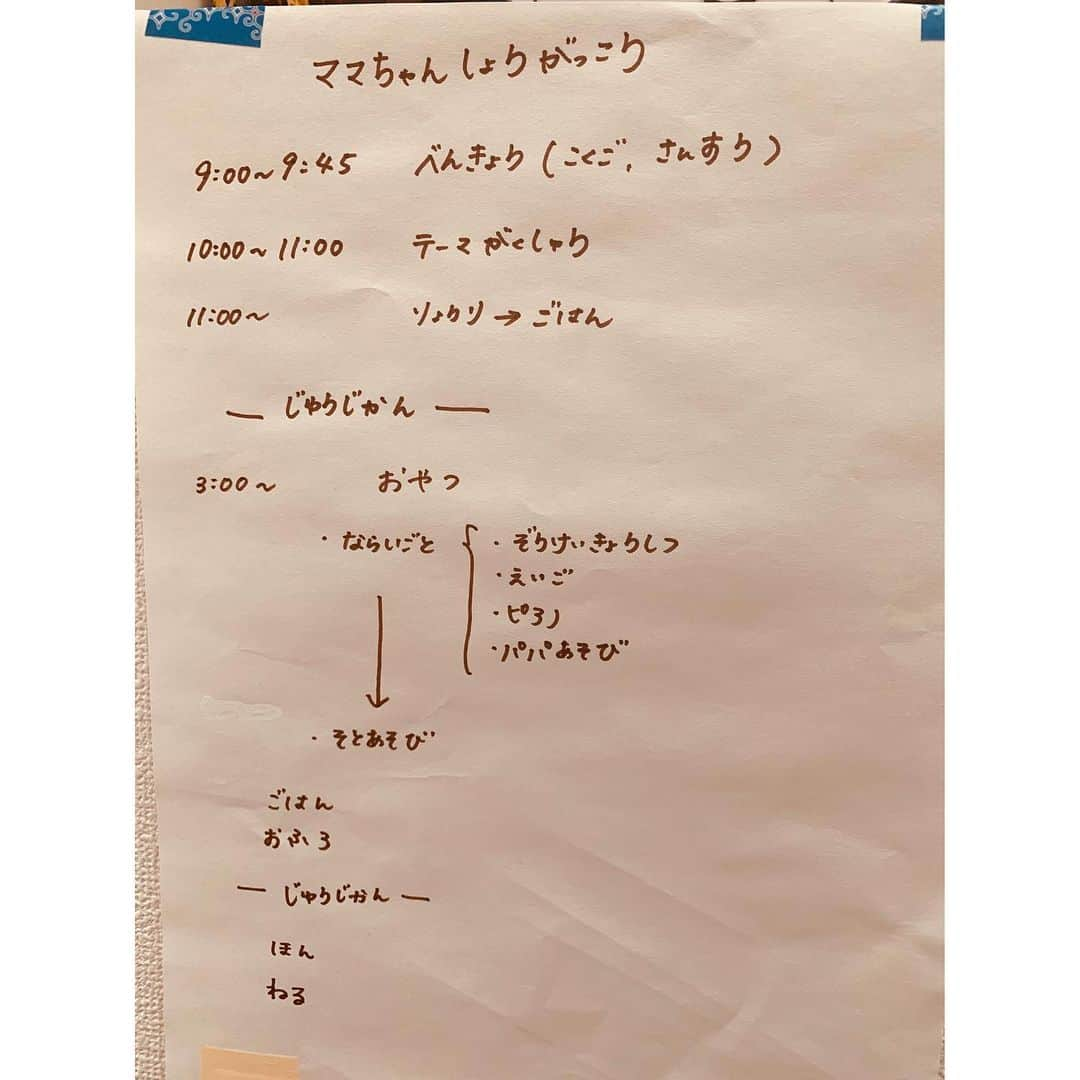 ママちゃんしょうがっこう
9:00~9:45 べんきょう(こくご, さんすう)
10:00~11:00 テーマがくしゅう
11:00~ りょうり→ごはん
— じゆうじかん —
3:00~ おやつ
・ならいごと { ・ぞうけいきょうしつ
・えいご
・ピアノ
・パパあそび
↓
・そとあそび
ごはん
おふろ
— じゆうじかん —
ほん
ねる